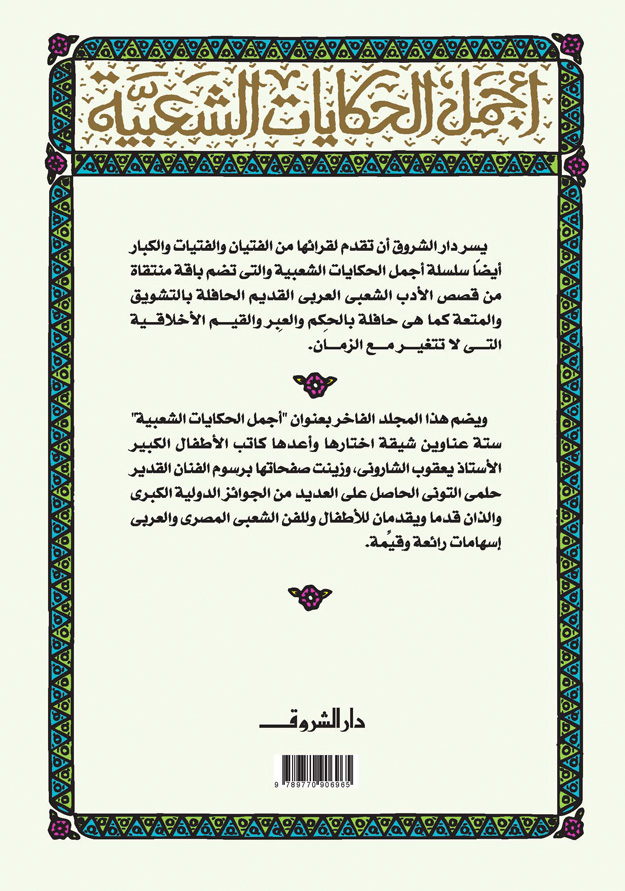 أجمل الحكايات الشعبية
يسر دار الشروق أن تقدم لقرائها من الفتيان والفتيات والكبار
أيضًا سلسلة أجمل الحكايات الشعبية والتى تضم باقة منتقاة
من قصص الأدب الشعبى العربى القديم الحافلة بالتشويق
والمتعة كما هى حافلة بالحِكم والعِبر والقيم الأخلاقية
التى لا تتغير مع الزمان.
ويضم هذا المجلد الفاخر بعنوان "أجمل الحكايات الشعبية"
ستة عناوين شيقة اختارها وأعدها كاتب الأطفال الكبير
الأستاذ يعقوب الشارونى، وزينت صفحاتها برسوم الفنان القدير
حلمى التونى الحاصل على العديد من الجوائز الدولية الكبرى
والذان قدما ويقدمان للأطفال وللفن الشعبى المصرى والعربى
إسهامات رائعة وقيِّمة.
دار الشروق
9 789770 906965